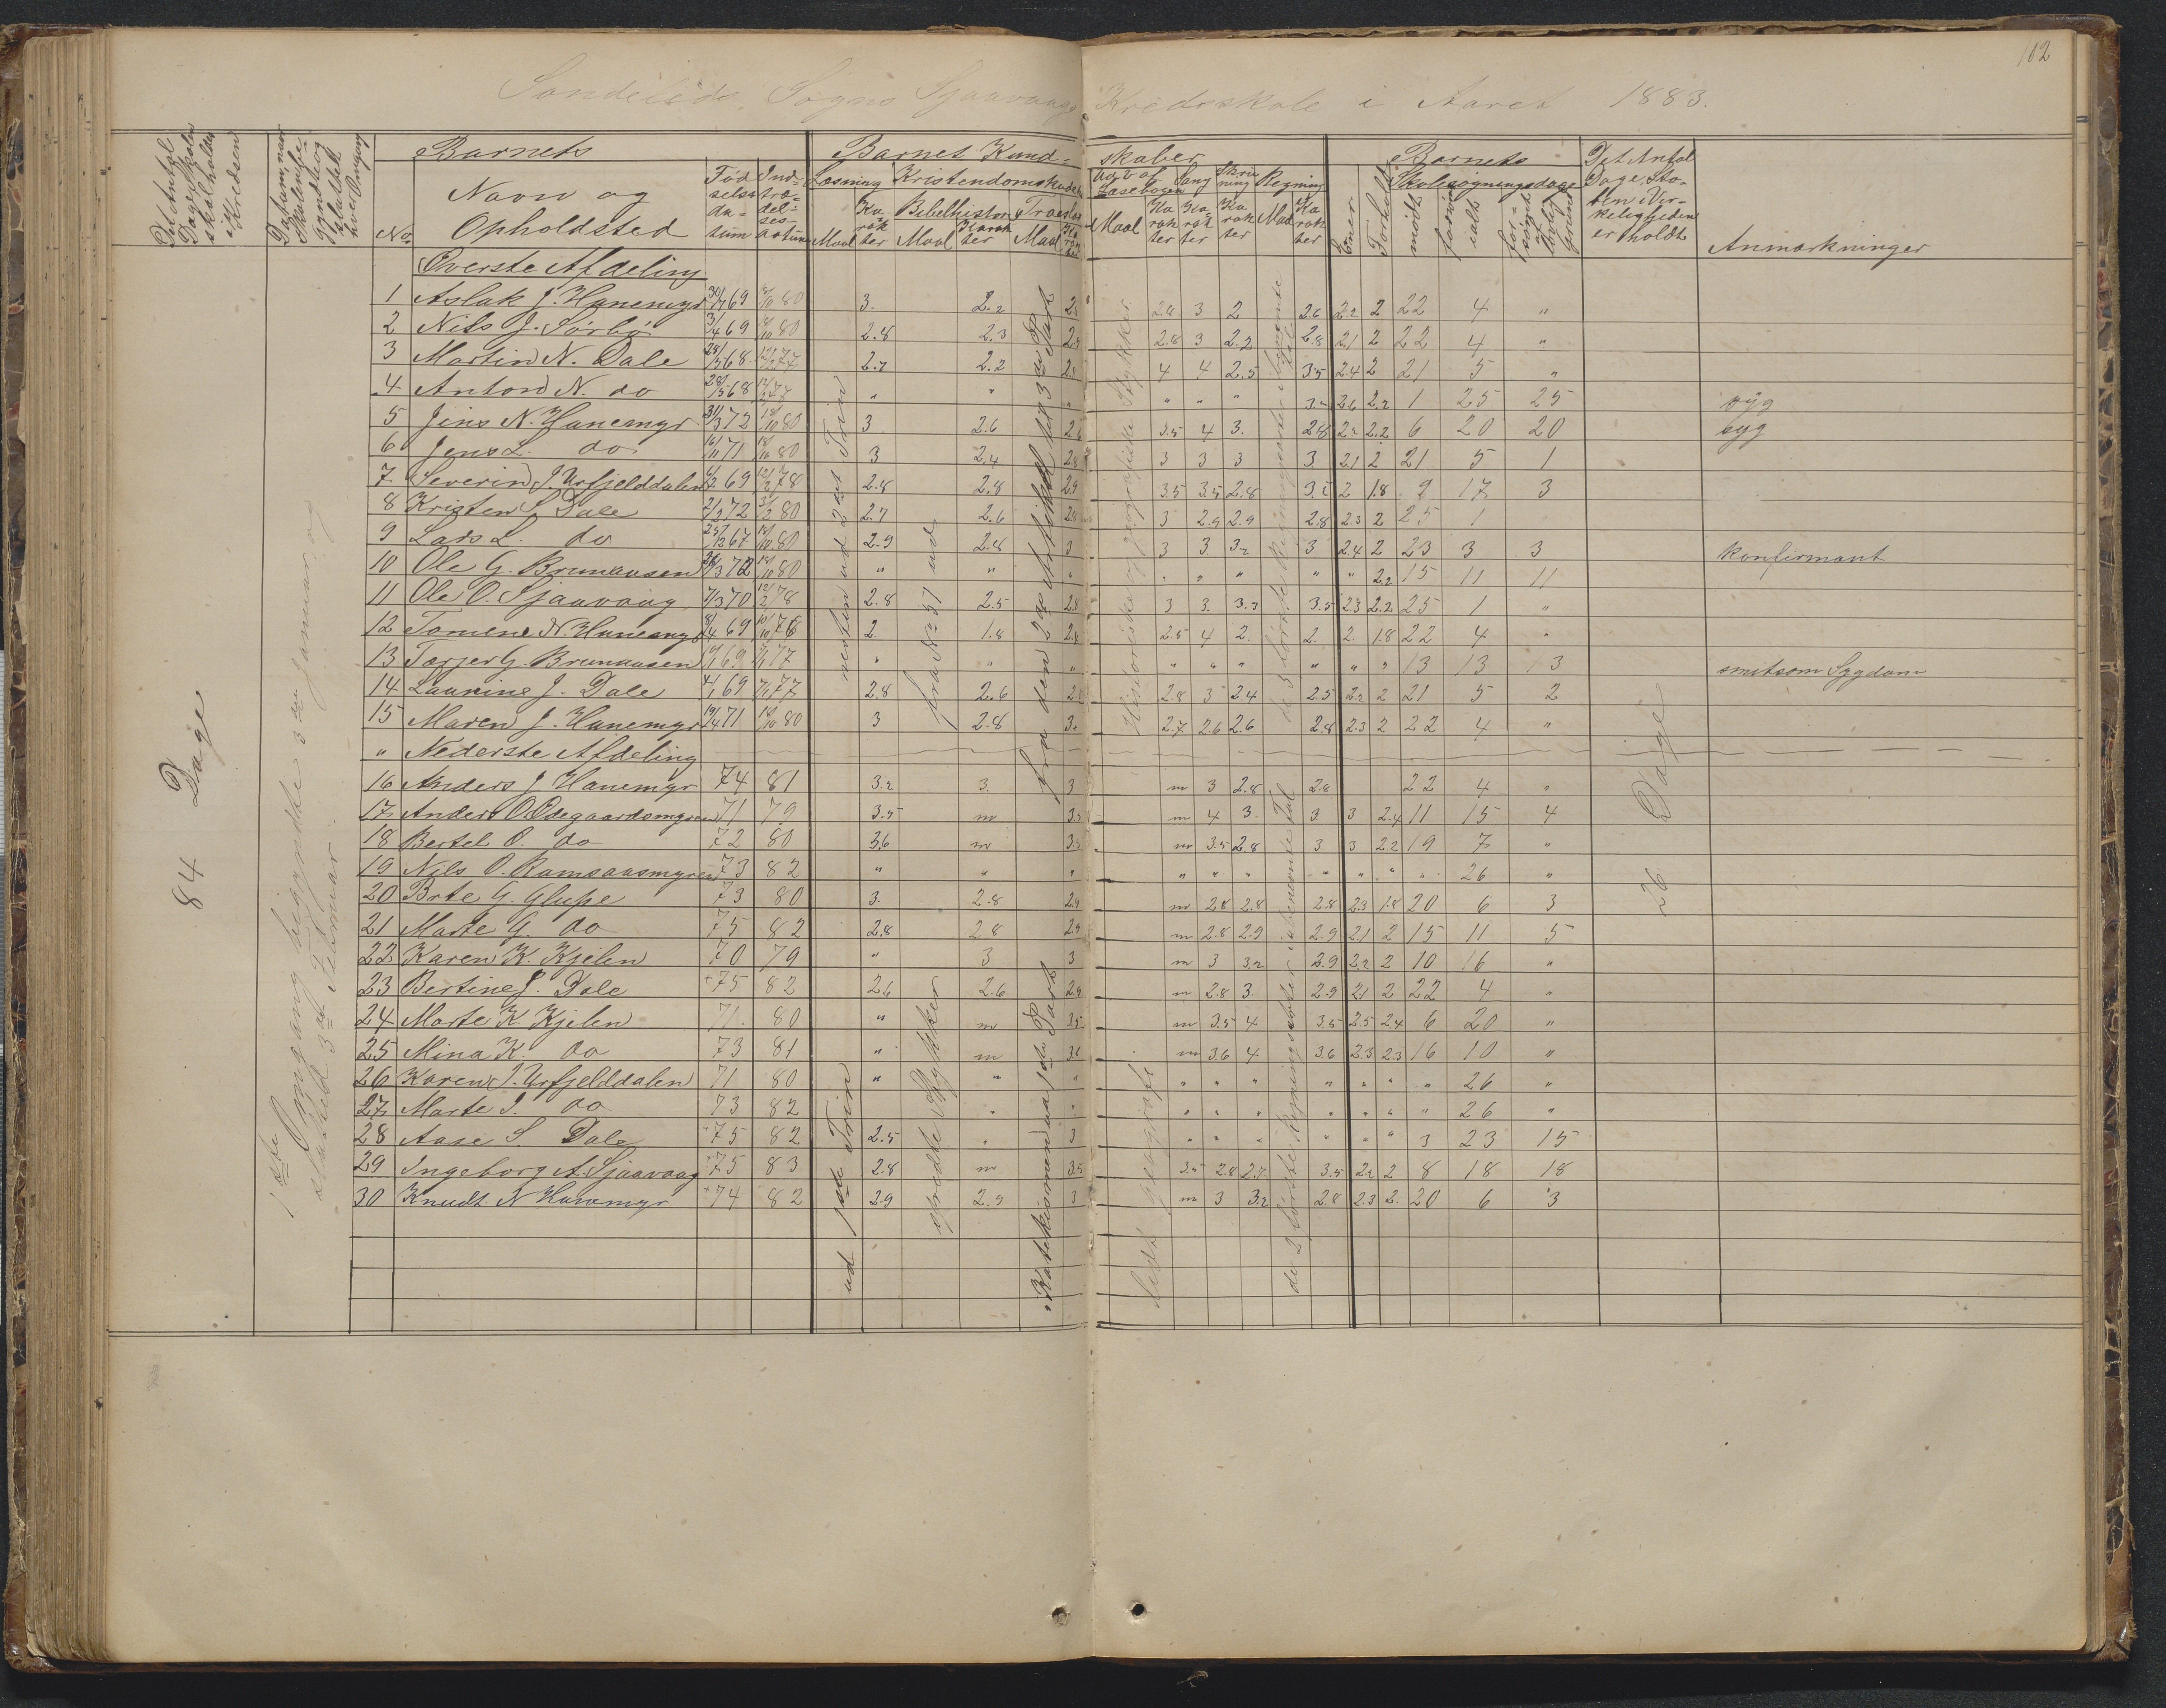 102
Søndeløds Sogns Sjaavaags Kredsskole i Aaret 1883.
Det Antal Dage Skolen skal holdes i Kredsen
Datum, naar Skolen begyndte og sluttede hver Omgang
Barnets
Barnets Kund-
skaber
Barnets
Det Antal Dage, Skolen i Virkeligheden er holdt
No.
Navn og Opholdsted
Fødselsdatum
Indtrædelsesdatum
Læsning
Kristendomskundskab
Bibelhistorie
Troeslære
Udvalg Læsebogen
Sang
Skrivning
Regning
Maal
Karakter
Evner
Forhold
Skolesøgningsdage
mødt
forsømt ialt
forsømt af lovlig Grund
Anmærkninger
Øverste Afdeling
1 Aslak J. Hanemyr 69 80 3. 2.2 2.8 3 2 2.6 2.2 2 22 4 "
2 Nils J. Sørbø 3/4 69 80 2.8 2.3 2.8 3 2.2 2.8 2.1 2 22 4 "
3 Martin N. Dale 68 77 2.7 2.2 4 4 2.5 3.5 2.4 2 21 5 "
4 Anton N. do 68 78 " " " " " 2.6 2.2 1 25 25 syg
5 Jens N. Hanemyr 31/3 72 80 3 2.6 3.5 4 3. 2.8 2.2 6 20 20 syg
6 Jens L. do 71 80 3 2.4 2.8 3 3 3 3 2.1 2 21 5 1
7. Severin J. Urfjelddalen 69 78 2.8 2.8 2.9 3.5 3.5 2.8 2 1.8 9 17 3
8 Kristen S. Dale 72 80 2.7 2.6 2.8 3 2.9 2.9 2.8 2.3 2 25 1
9 Lars L. do 67 80 2.9 2.8 3 3 3 3.2 3 2.4 2 23 3 3 konfirmant
10 Ole G. Brunaasen 72 80 " " " " " " " " 2.2 15 11 11
11 Ole O. Sjaavaag 7/3 70 12/2 78 2.8 2.5 2.8 3 3. 3.5 2.3 2.2 25 1 "
12 Tomine N. Hanemyr 8/4 69 78 2. 1.8 2.8 2.5 4 2. 2. 2. 1.8 22 4 "
13 Torjer G. Brunaasen 69 77 " " " " " " " " " 13 13 13 smitsom Sygdom
14 Laurine J. Dale 69 77 2.8 2.6 2.8 3 2.4 2.5 2.2 2 21 5 2
15 Maren J. Hanemyr 19/4 71 80 3 2.8 3. 2.7 2.6 2.6 2.8 2.3 2 22 4 "
" Nederste Afdeling
16 Anders J. Hanemyr 74 81 3.2 3. 3 m 3 2.8 2.8 22 4 "
17 Anders O. Ødegaardsmyren 71 79 3.5 m 3.5 m 4 3. 3. 3 2.4 11 15 4
18 Bertel O. do 72 80 3.6 m m 3.5 2.8 3 3 2.2 19 7 "
19 Nils O. Ramsaasmyren 73 82 " " " " " " " " " " 26 "
20 Brte G. Glupe 73 80 3. 2.8 2.9 m 2.8 2.8 2.8 2.3 1.8 20 6 3
21 Marte G. do 75 82 2.8 2.8 2.9 m 2.8 2.9 2.9 2.1 2 15 11 5
22 Karen K. Kjelen 70 79 " 3 3 m 3 3.2 2.9 2.2 2 10 16 "
23 Bertine J. Dale 75 82 2.6 2.6 2.9 m 2.8 3. 2.9 2.1 2 22 4 "
24 Marte K. Kjelen 71 80 " m 3.5 m 3.5 4 3.5 2.5 2.4 6 20 "
25 Mina K. do 73 81 " m 3.6 m 3.6 4 3.6 2.3 2.3 16 10 "
26 Karen J. Urfjelddalen 71 80 " " " " " " " " " " 26 "
27 Marte J. do 73 82 " " " " " " " " " 26 "
28 Aase S. Dale 75 82 2.5 " 3 " " " " " " 3 23 15
29 Ingeborg A. Sjaavaag 75 83 2.8 m 3.5 3.5 2.8 2.7 3.5 2.2 2 8 18 18
30 Knudt N. Hanemyr 74 82 2.9 2.9 3 m 3 3.2 2.8 2.3 2. 20 6 3
84 Dage
1ste Omgang begyndte 3die Januar og sluttede 3die Februar.
ud 1ste Trin
midten ud 2det Trin
spredte Stykker
fra No 37 ud
Katekismen uaa 1ste Part
fra den 2den Artikel til 3die Part
lidt geografi
Historiske og geografiske Stykker
de 2 første Regningsarter i ubenevnte Tal
de 3 første Regningsarter i benevnte Tal
26 Dage